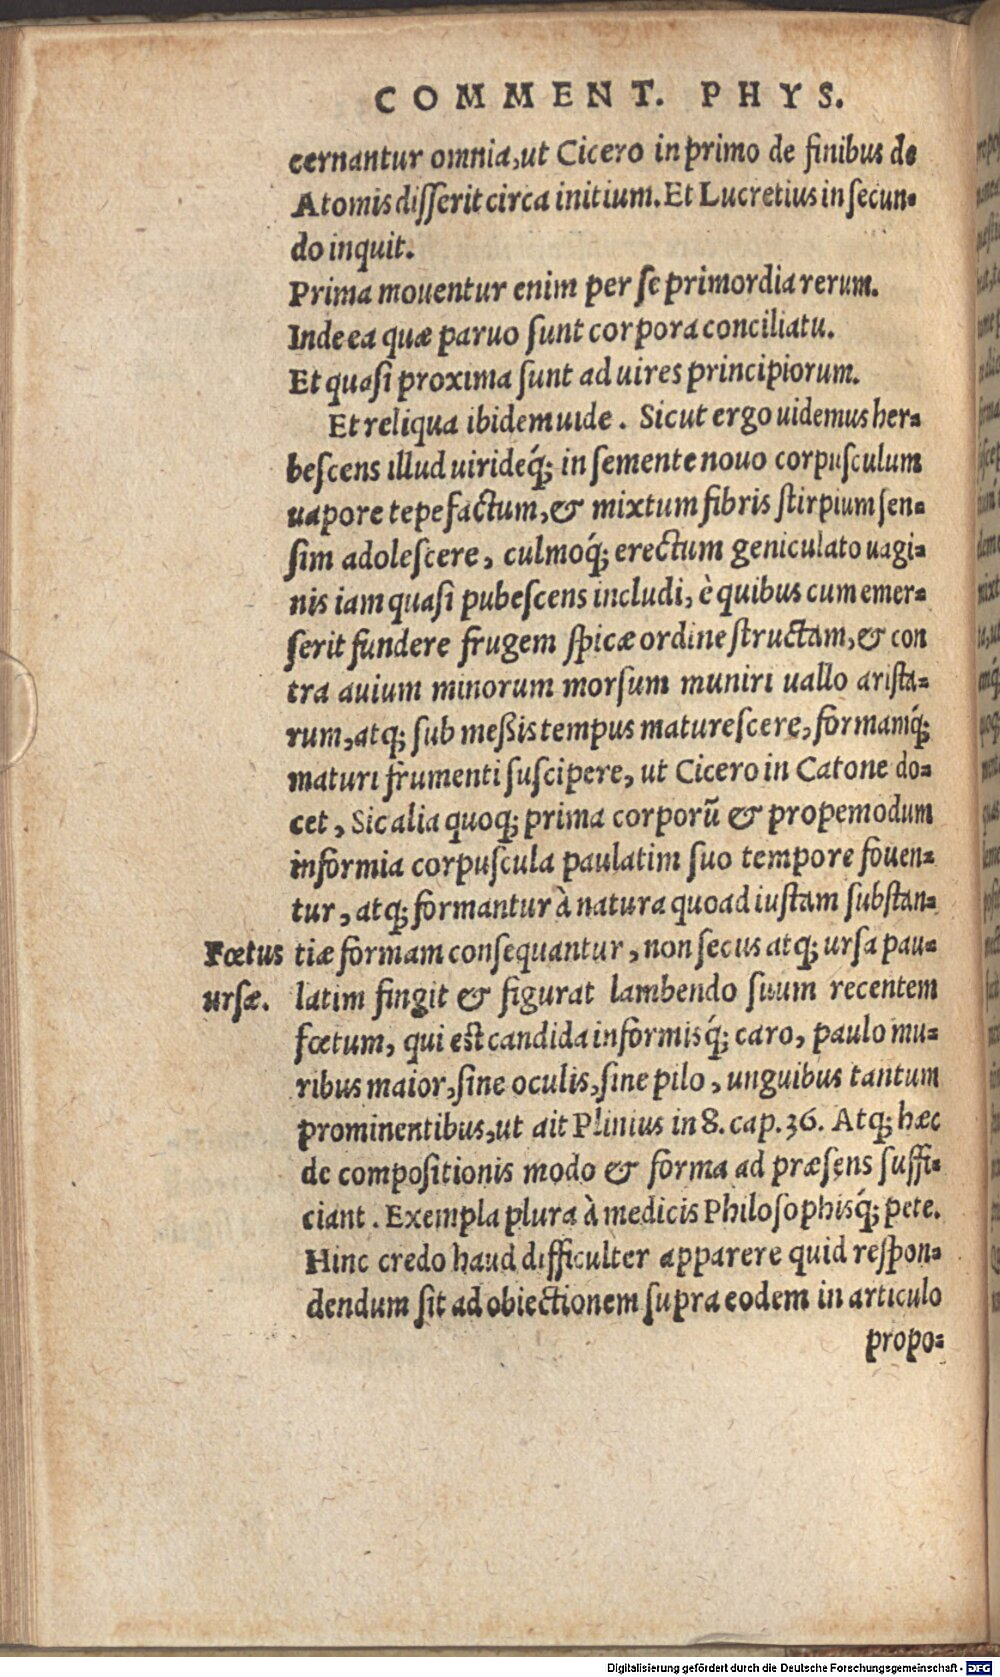 COMMENT. PHYS.
cernantur omnia, ut Cicero in primo de finibus de
Atomis disserit circa initium. Et Lucretius in secun-
do inquit.
Prima mouentur enim per se primordia rerum.
Inde ea quæ paruo sunt corpora conciliatu.
Et quasi proxima sunt ad uires principiorum.
Et reliqua ibidem uide. Sicut ergo uidemus her-
bescens illud uirideq́; in semente nouo corpusculum
uapore tepefactum, & mixtum fibris stirpium sen-
sim adolescere, culmoq́; erectum geniculato uagi-
nis iam quasi pubescens includi, è quibus cum emer-
serit fundere frugem spicæ ordine structam, & con
tra auium minorum morsum muniri uallo arista-
rum, atq; sub meßis tempus maturescere, formamq́;
maturi frumenti suscipere, ut Cicero in Catone do-
cet, Sic alia quoq; prima corporũ & propemodum
informia corpuscula paulatim suo tempore fouen-
tur, atq; formantur à natura quoad iustam substan-
Fœtus tiæ formam consequantur, non secus atq; ursa pau-
ursæ. latim fingit & figurat lambendo suum recentem
fœtum, qui est candida informisq́; caro, paulo mu-
ribus maior, sine oculis, sine pilo, unguibus tantum
prominentibus, ut ait Plinius in 8. cap. 36. Atq; hæc
de compositionis modo & forma ad præsens suffi-
ciant. Exempla plura à medicis Philosophisq́; pete.
Hinc credo haud difficulter apparere quid respon-
dendum sit ad obiectionem supra eodem in articulo
propo-
Digitalisierung gefördert durch die Deutsche Forschungsgemeinschaft - DFG